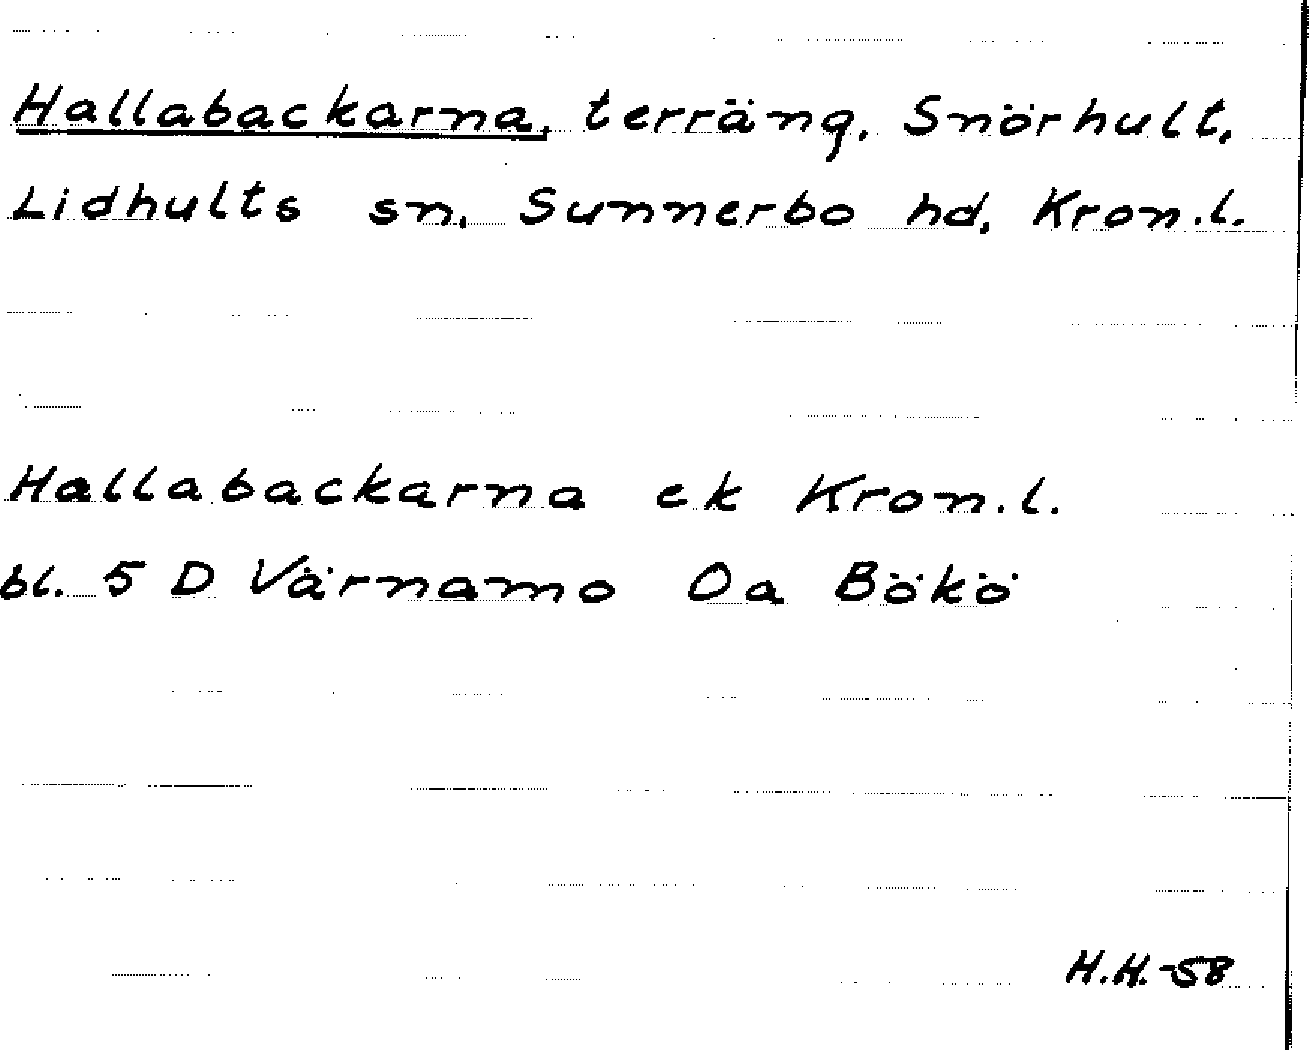 Hallabackarna, terräng, Snörhult,
Lidhults sn, Sunnerbo hd, Kron.l.
Hallabackarna ek Kron.l.
bl. 5 D Värnamo Oa Bökö
H.H.-58